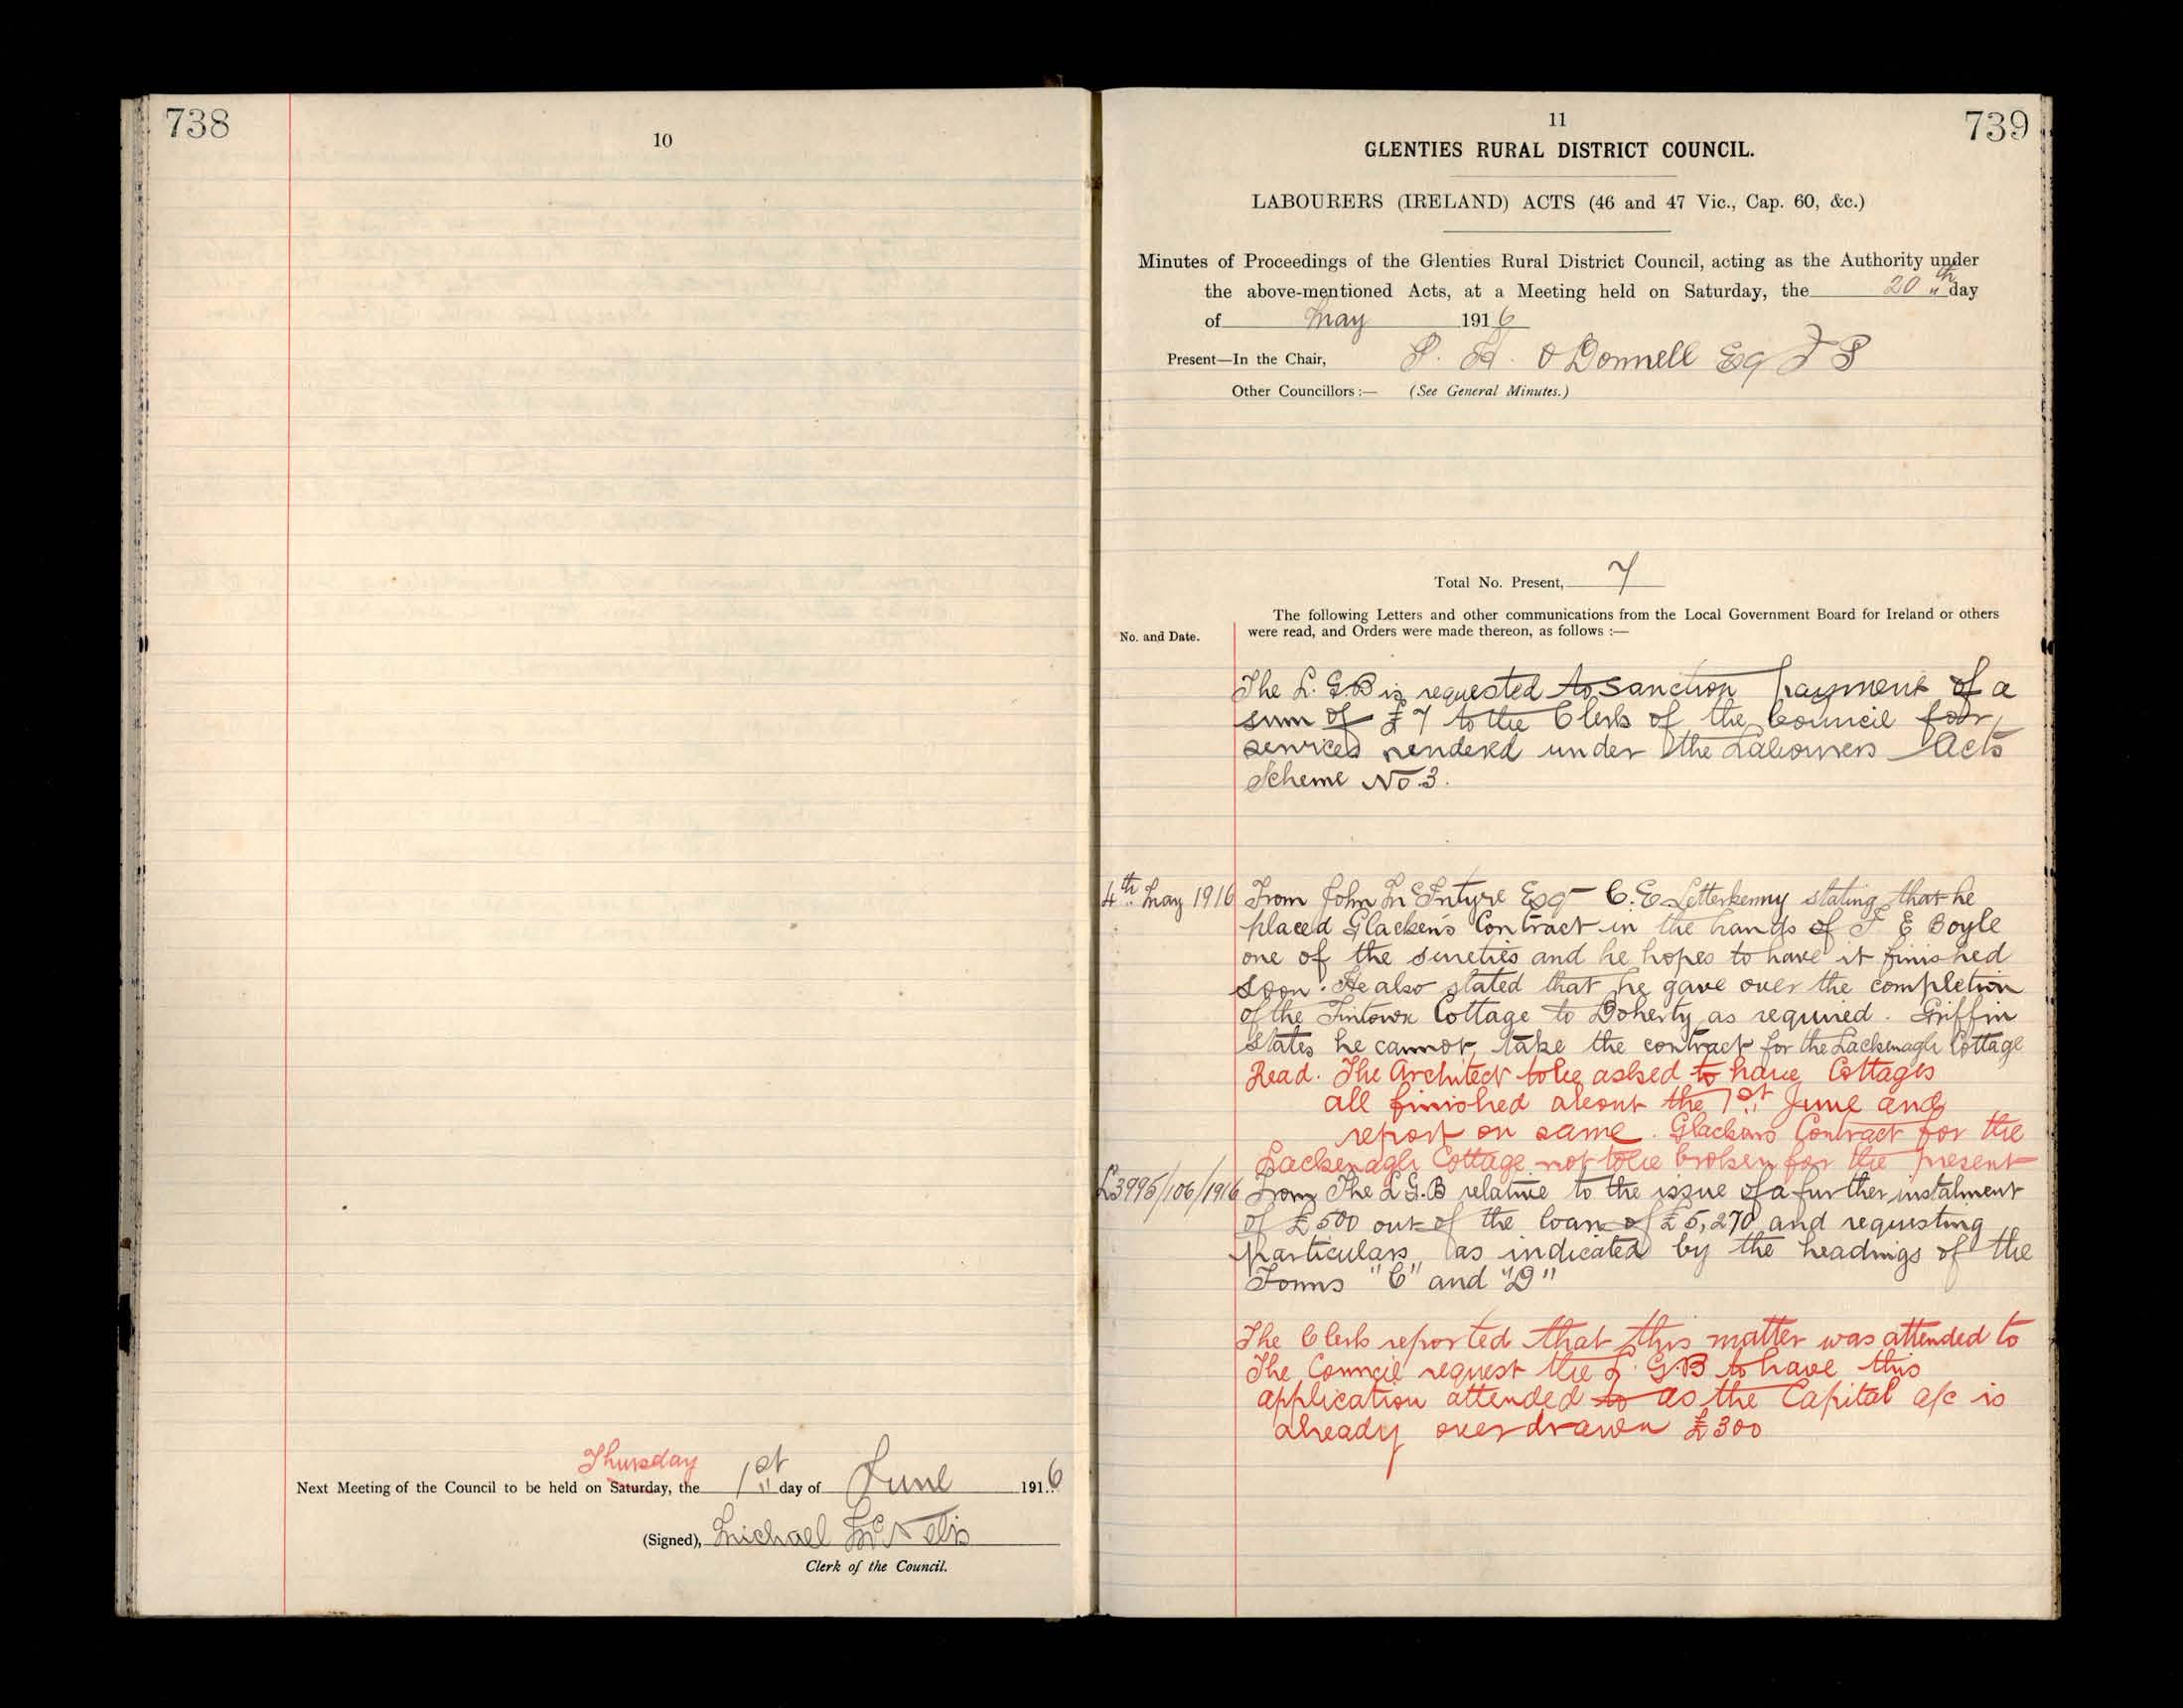 738
10
Thursday
Next Meeting of the Council to be held on Saturday, the 1st day of June 1916
(Signed), Michael McNelis
Clerk of the Council.
739
11
GLENTIES RURAL DISTRICT COUNCIL.
LABOURERS (IRELAND) ACTS (46 and 47 Vic., Cap. 60, &c.)
Minutes of Proceedings of the Glenties Rural District Council, acting as the Authority under
the above-mentioned Acts, at a Meeting held on Saturday, the 20th day
of May 1916
Present—In the Chair, O'Donnell Esq JP
Other Councillors:— (See General Minutes.)
Total No. Present, 7
The following Letters and other communications from the Local Government Board for Ireland or others
No. and Date. were read, and Orders were made thereon, as follows :—
The L.G.B is requested to sanction payment of a
sum of £7 to the Clerk of the Council for
services rendered under the Labourers Acts
Scheme No. 3.
4th May 1916 From John McIntyre Esqr C.E Letterkenny stating that he
placed Glacken's Contract in the hands of J E Boyle
one of the sureties and he hopes to have it finished
soon. He also stated that he gave over the completion
of the Fintown Cottage to Doherty as required. Griffin
states he cannot take the contract for the Lackenagh Cottage
Read. The Architect to be asked to have Cottages
all finished about the 1st June and
report on same. Glackens Contract for the
Lackenagh Cottage not to be broken for the present
L3995/106/1916 From The L G.B relative to the issue of a further instalment
of £500 out of the loan of £5,270 and requesting
particulars as indicated by the headings of the
Forms "C" and "D"
The Clerk reported that this matter was attended to
The Council request the L.G.B to have this
application attended to as the Capital a/c is
already overdrawn £300